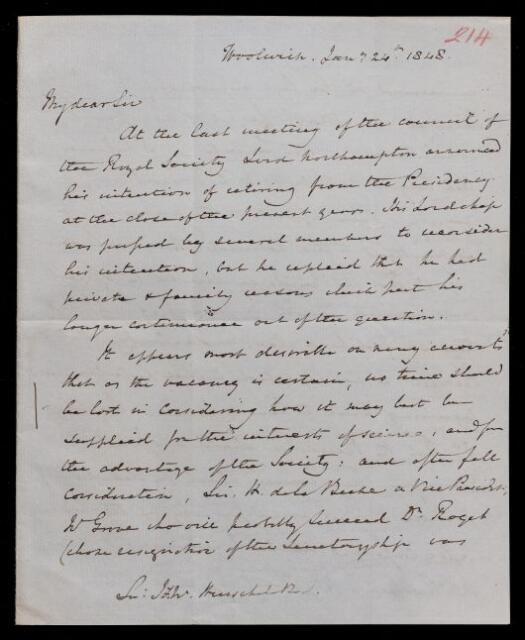 214
Woolwich. Jany 24th 1848.
My dear Sir
At the last meeting of the council of
the Royal Society Lord Northampton announced
his intention of retiring from the Presidency
at the close of the present year. His Lordship
was pressed by several members to reconsider
his intention, but he replied that he had
private & family reasons which put his
longer continuance out of the question.
It appears most desirable on many accounts
that as the vacancy is certain, no time should
be lost in considering how it may best be
supplied for the interests of science, and for
the advantage of the Society; and after full
consideration, Sir H. de la Beche a Vice President,
Mr Grove who will probably succeed Dr Roget
(whose resignation of the Secretaryship was
Sir John Herschel Bt.